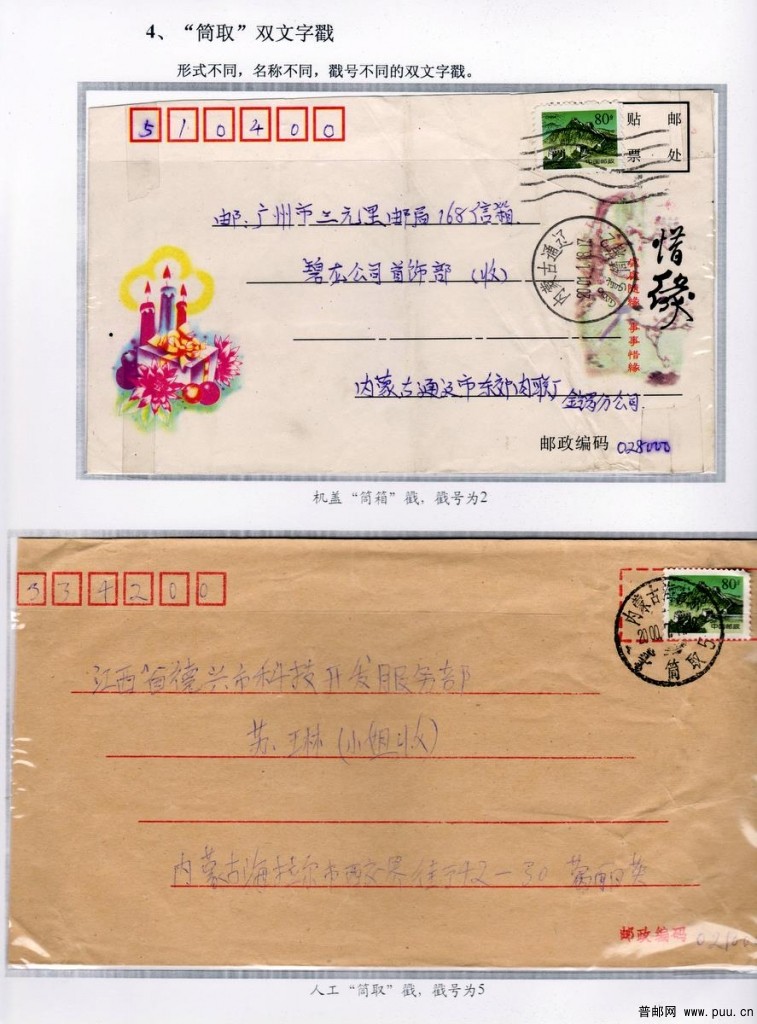 4、“筒取”双文字戳
形式不同，名称不同，戳号不同的双文字戳。
510400
80分
中国邮政
贴 邮
票 处
邮:广州市三元里邮局168信箱
碧龙公司首饰部 (收)
内蒙古通辽
惜
缘
事事惜缘
内蒙古通辽市东郊肉联厂金锣分公司
邮政编码 028000
机盖“筒箱”戳，戳号为2
334200
80分
中国邮政
内蒙古海
2000
筒取5
江西省德兴市科技开发服务部
苏 琳(小姐收)
内蒙古海拉尔市
邮政编码 02100
人工“筒取”戳，戳号为5
普邮网 www.puu.cn